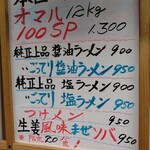 オマル 12kg
100SP 1.300
純正上品 醤油ラーメン 900
〃ごってり醤油ラーメン 950
純正上品 塩ラーメン 900
〃ごってり塩ラーメン 950
つけメン 950
生姜風味まぜソバ 950